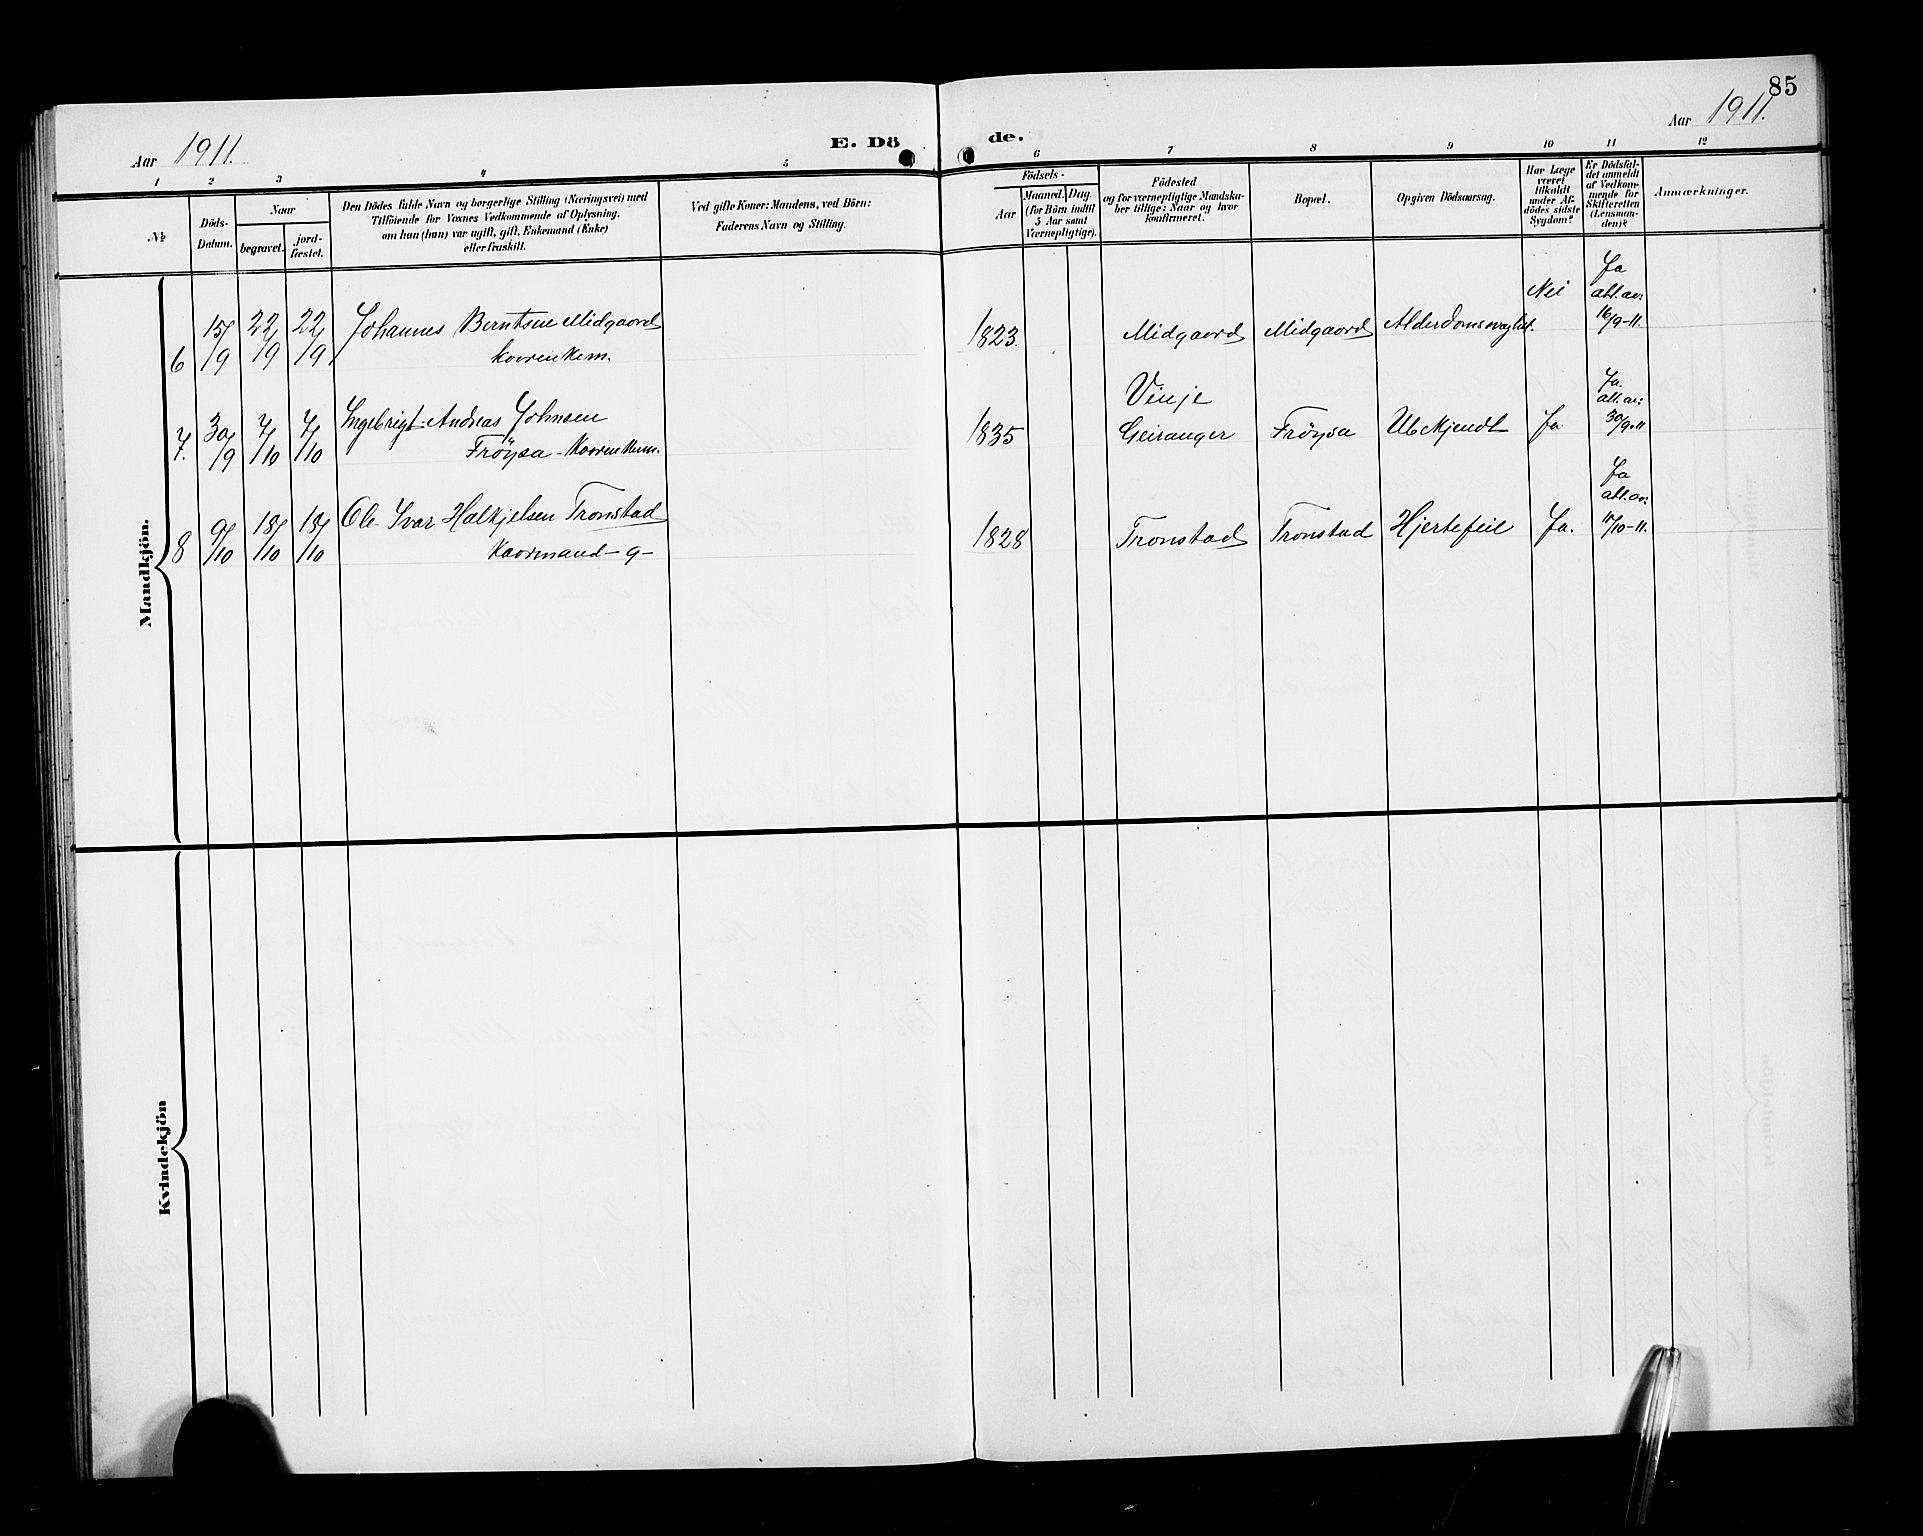 85
Aar 1911.
E. Dö de.
Aar 1911.
1 2 3 4 5 6 7 8 9 10 11 12
№
Döds-
Datum.
Naar
begravet.
jord-
fæstet.
Den Dödes fulde Navn og borgerlige Stilling (Næringsvei) med
Tilföiende for Voxnes Vedkommende af Oplysning,
om han (hun) var ugift, gift, Enkemand (Enke)
eller fraskilt.
Ved gifte Koner: Mandens, ved Börn:
Faderens Navn og Stilling.
Födsels-
Aar
Maaned.
Dag.
(for Börn indtil
5 Aar samt
Værnepligtige).
Födested
og for værnepligtige Mandska-
ber tillige: Naar og hvor
konfirmeret.
Bopæl.
Opgiven Dödsaarsag.
Har Læge
været
tilkaldt
under Af-
dödes sidste
Sygdom?
Er Dödsfal-
det anmeldt
af Vedkom-
mende for
Skifteretten
(Lensman-
den)?
Anmærkninger.
Mandkjön.
6 15/9 22/9 22/9 Johannes Berntsen Midgaard
kaarenkem.
1823. Midgaard Midgaard Nei
Ja
att. av:
16/9-11.
7. 30/9 7/10 7/10 Ingebrigt Andreas Johnsen
Fröysa - kaarenkem.
1835 Vinje
Geiranger Fröysa Ubekjendt Ja
Ja
att. av:
30/9-11
8 9/10 18/10 18/10 Ole Ivar Halkjelsen Tronstad
Kaarmand - g-
1828 Tronstad Tronstad Hjertefeil Ja.
Ja
att. av:
11/10-11.
Kvindekjön